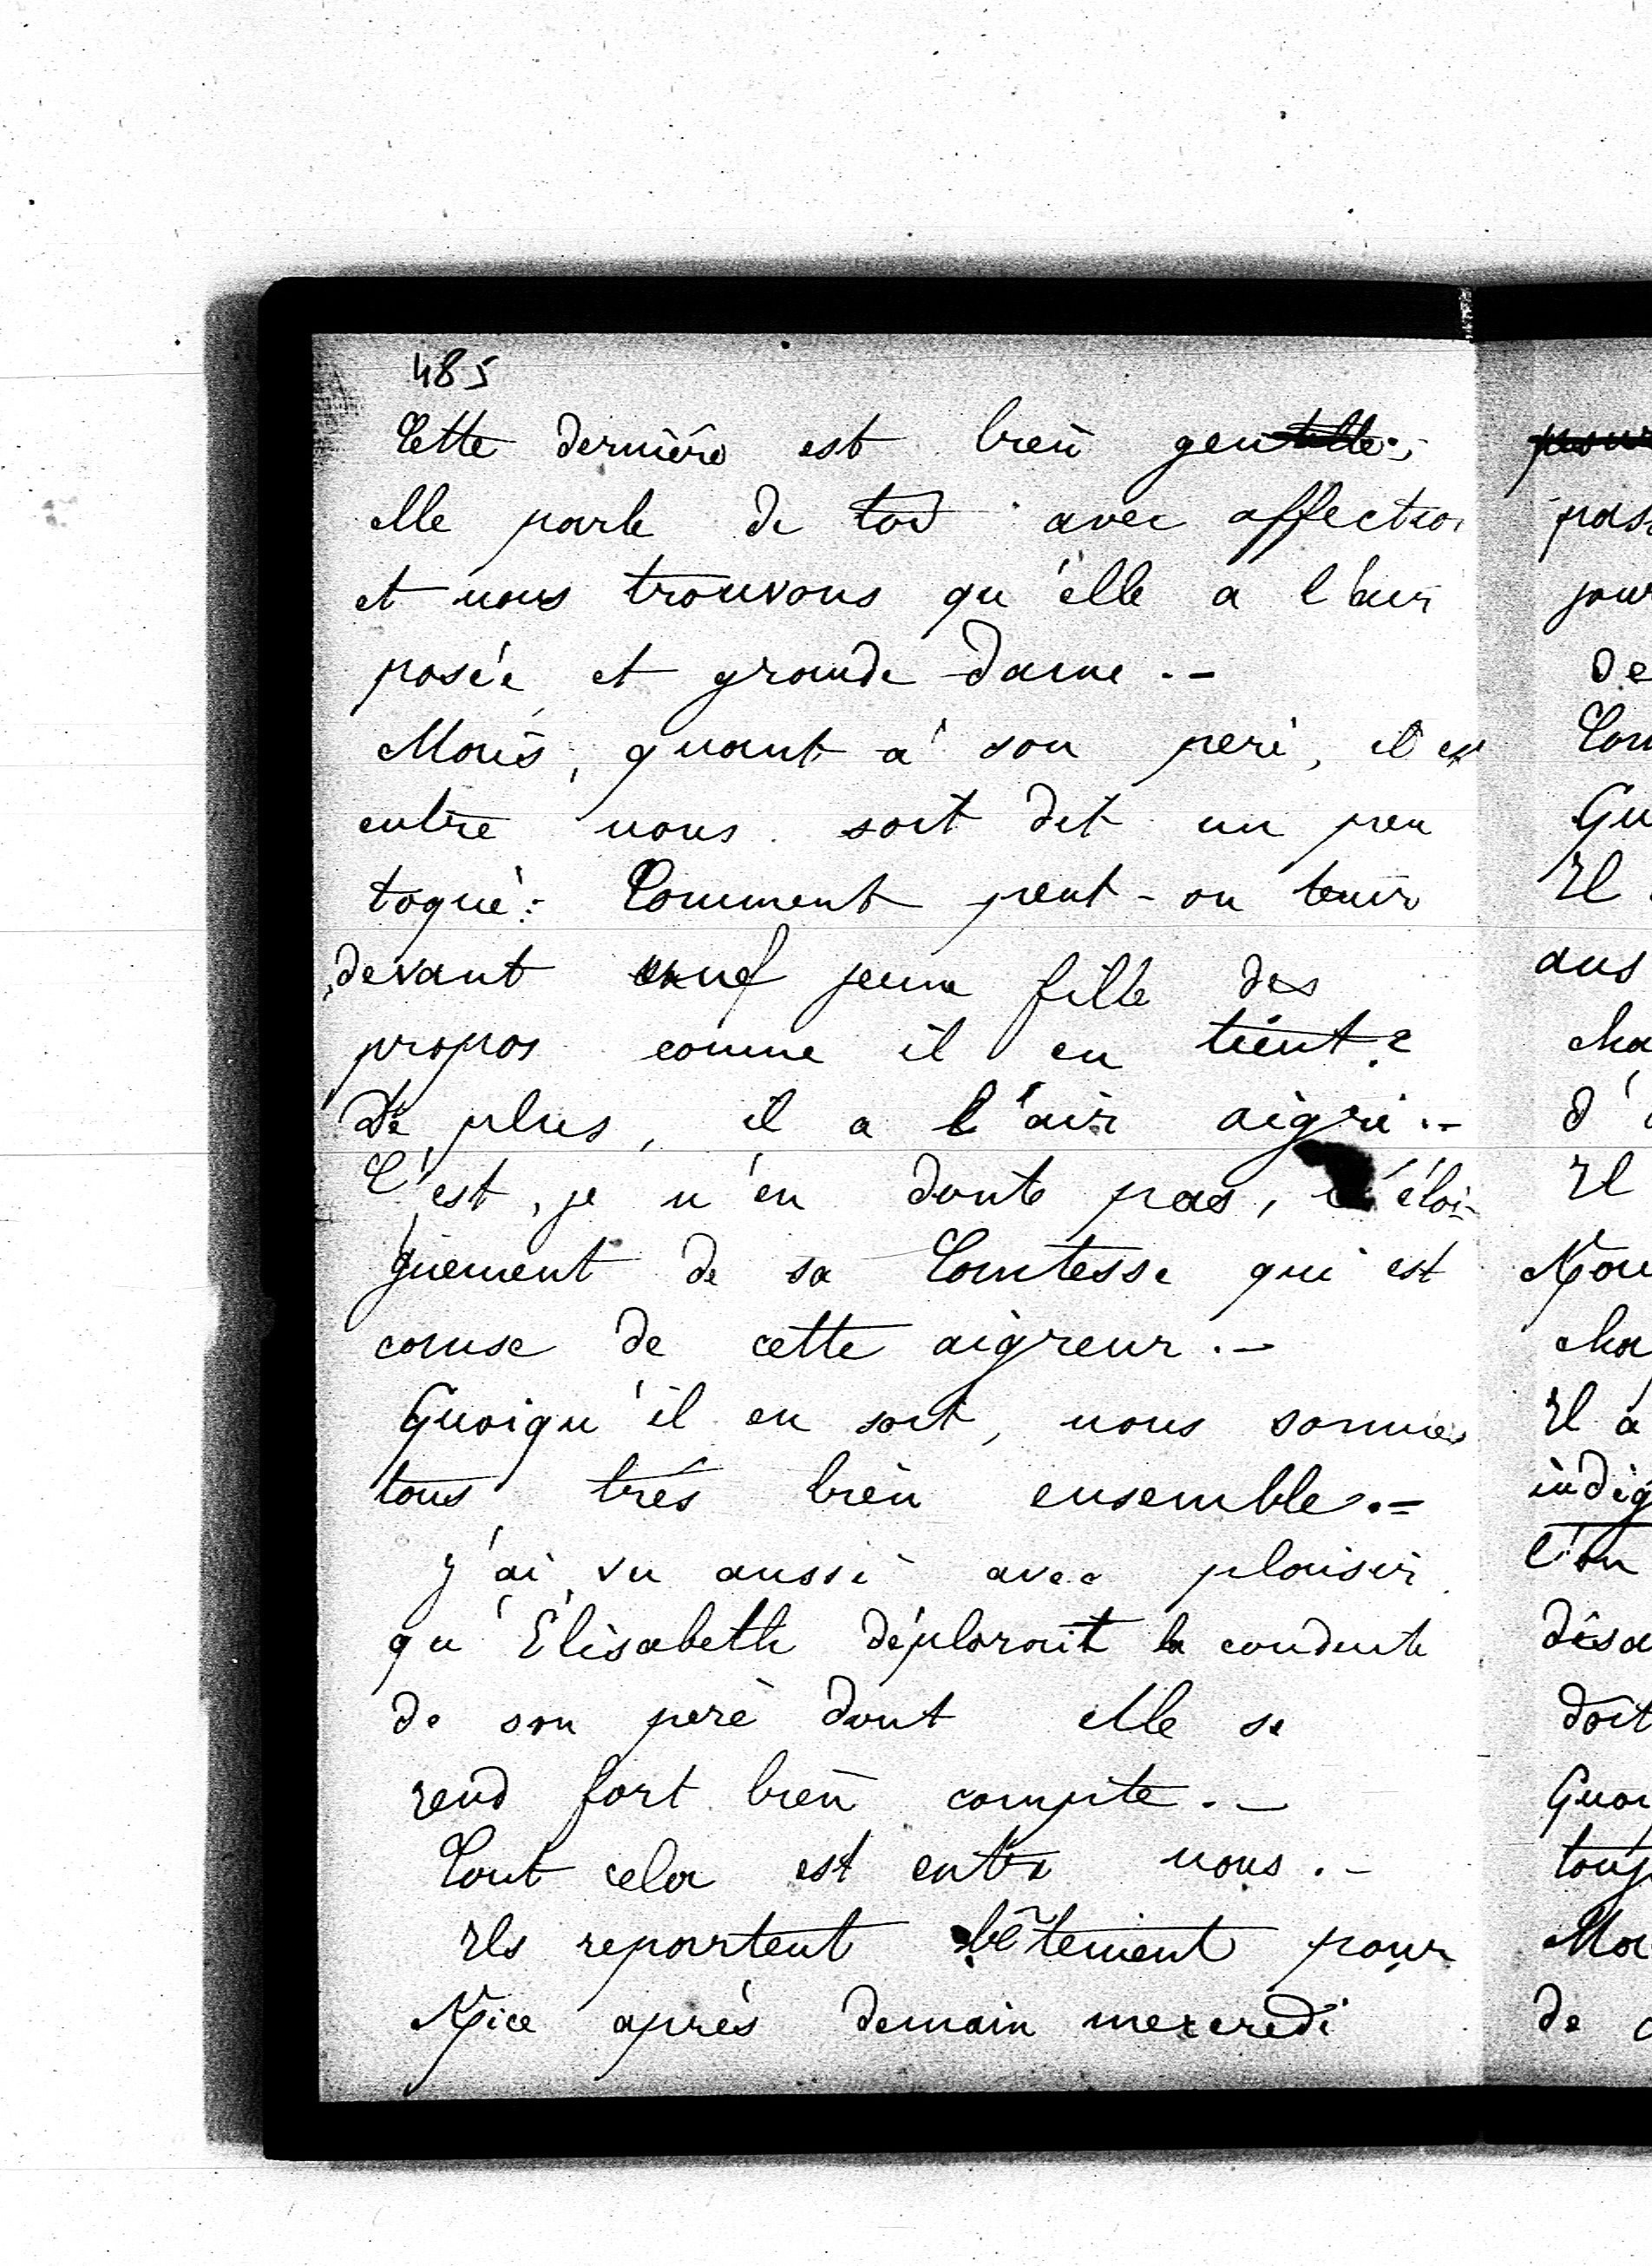 485
Cette dernière est bien gentille;
elle parle de toi avec affection
et nous trouvons qu'elle a l'air
posée et grande dame.-
Mais, quant à son père, il est
entre nous soit dit un peu
toqué: Comment peut-on tenir
devant une jeune fille des
propos comme il en tient?
De plus, il a l'air aigri.-
C'est, je n'en doute pas, l'éloi-
gnement de sa Comtesse qui est
cause de cette aigreur.-
Quoiqu'il en soit, nous sommes
tous très bien ensemble.-
J'ai vu aussi avec plaisir
qu'Élisabeth déplorait la conduite
de son père dont elle se
rend fort bien compte.-
Tout cela est entre nous.-
Ils repartent bêtement pour
Nice après demain mercredi
pas
jour
de
Com
Qu
Il
ans
cha
d'
Il
Nou
cha
Il a
indig
l'on
désa
doit
Quoi
touj
Ma
de